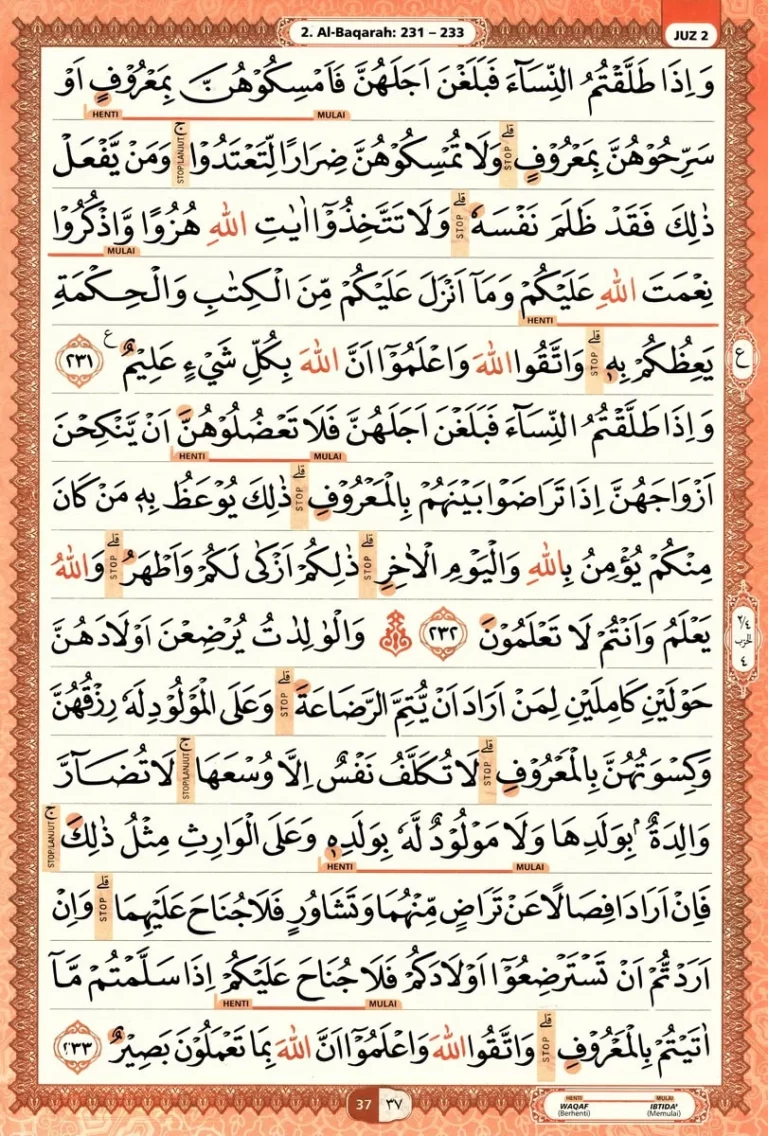 2. Al-Baqarah: 231 – 233
JUZ 2
وَاِذَا طَلَّقْتُمُ النِّسَاۤءَ فَبَلَغْنَ اَجَلَهُنَّ فَاَمْسِكُوْهُنَّ بِمَعْرُوْفٍ اَوْ
HENTI MULAI
سَرِّحُوْهُنَّ بِمَعْرُوْفٍۗ STOP وَلَا تُمْسِكُوْهُنَّ ضِرَارًا لِّتَعْتَدُوْاۚ STOP/LANJUT وَمَنْ يَّفْعَلْ
ذٰلِكَ فَقَدْ ظَلَمَ نَفْسَهٗۗ STOP وَلَا تَتَّخِذُوْٓا اٰيٰتِ اللّٰهِ هُزُوًا وَّاذْكُرُوْا
MULAI
نِعْمَتَ اللّٰهِ عَلَيْكُمْ وَمَآ اَنْزَلَ عَلَيْكُمْ مِّنَ الْكِتٰبِ وَالْحِكْمَةِ
HENTI
يَعِظُكُمْ بِهٖۗ STOP وَاتَّقُوا اللّٰهَ وَاعْلَمُوْٓا اَنَّ اللّٰهَ بِكُلِّ شَيْءٍ عَلِيْمٌ ࣖ ٢٣١
ع
وَاِذَا طَلَّقْتُمُ النِّسَاۤءَ فَبَلَغْنَ اَجَلَهُنَّ فَلَا تَعْضُلُوْهُنَّ اَنْ يَّنْكِحْنَ
HENTI MULAI
اَزْوَاجَهُنَّ اِذَا تَرَاضَوْا بَيْنَهُمْ بِالْمَعْرُوْفِۗ STOP ذٰلِكَ يُوْعَظُ بِهٖ مَنْ كَانَ
مِنْكُمْ يُؤْمِنُ بِاللّٰهِ وَالْيَوْمِ الْاٰخِرِۗ STOP ذٰلِكُمْ اَزْكٰى لَكُمْ وَاَطْهَرُۗ STOP وَاللّٰهُ
يَعْلَمُ وَاَنْتُمْ لَا تَعْلَمُوْنَ ٢٣٢ ۞ وَالْوٰلِدٰتُ يُرْضِعْنَ اَوْلَادَهُنَّ
٢/٤
الحزب
٤
حَوْلَيْنِ كَامِلَيْنِ لِمَنْ اَرَادَ اَنْ يُّتِمَّ الرَّضَاعَةَۗ STOP وَعَلَى الْمَوْلُوْدِ لَهٗ رِزْقُهُنَّ
وَكِسْوَتُهُنَّ بِالْمَعْرُوْفِۗ STOP لَا تُكَلَّفُ نَفْسٌ اِلَّا وُسْعَهَاۚ STOP/LANJUT لَا تُضَاۤرَّ
وَالِدَةٌ ۢبِوَلَدِهَا وَلَا مَوْلُوْدٌ لَّهٗ بِوَلَدِهٖ وَعَلَى الْوَارِثِ مِثْلُ ذٰلِكَۚ STOP/LANJUT
HENTI MULAI
فَاِنْ اَرَادَا فِصَالًا عَنْ تَرَاضٍ مِّنْهُمَا وَتَشَاوُرٍ فَلَا جُنَاحَ عَلَيْهِمَاۗ STOP وَاِنْ
اَرَدْتُّمْ اَنْ تَسْتَرْضِعُوْٓا اَوْلَادَكُمْ فَلَا جُنَاحَ عَلَيْكُمْ اِذَا سَلَّمْتُمْ مَّآ
HENTI MULAI
اٰتَيْتُمْ بِالْمَعْرُوْفِۗ STOP وَاتَّقُوا اللّٰهَ وَاعْلَمُوْٓا اَنَّ اللّٰهَ بِمَا تَعْمَلُوْنَ بَصِيْرٌ ٢٣٣
37 ٣٧
HENTI MULAI
WAQAF (Berhenti) IBTIDA' (Memulai)